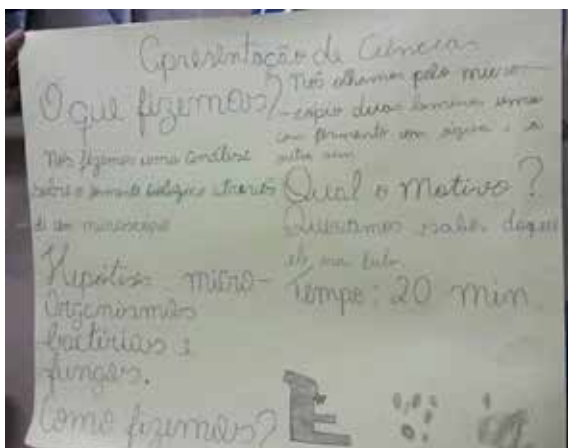 Apresentação de Ciências
O que fizemos?
Nós fizemos uma análise
sobre o fermento biológico através
de um microscópio
Hipótises micro-
organismos
bactérias e
fungos.
Como fizemos?
Nós olhamos pelo micro-
cópio duas laminas uma
com fermento com água e a
outra sem
Qual o Motivo?
Queriamos saber daque
ele
Tempo: 20 min